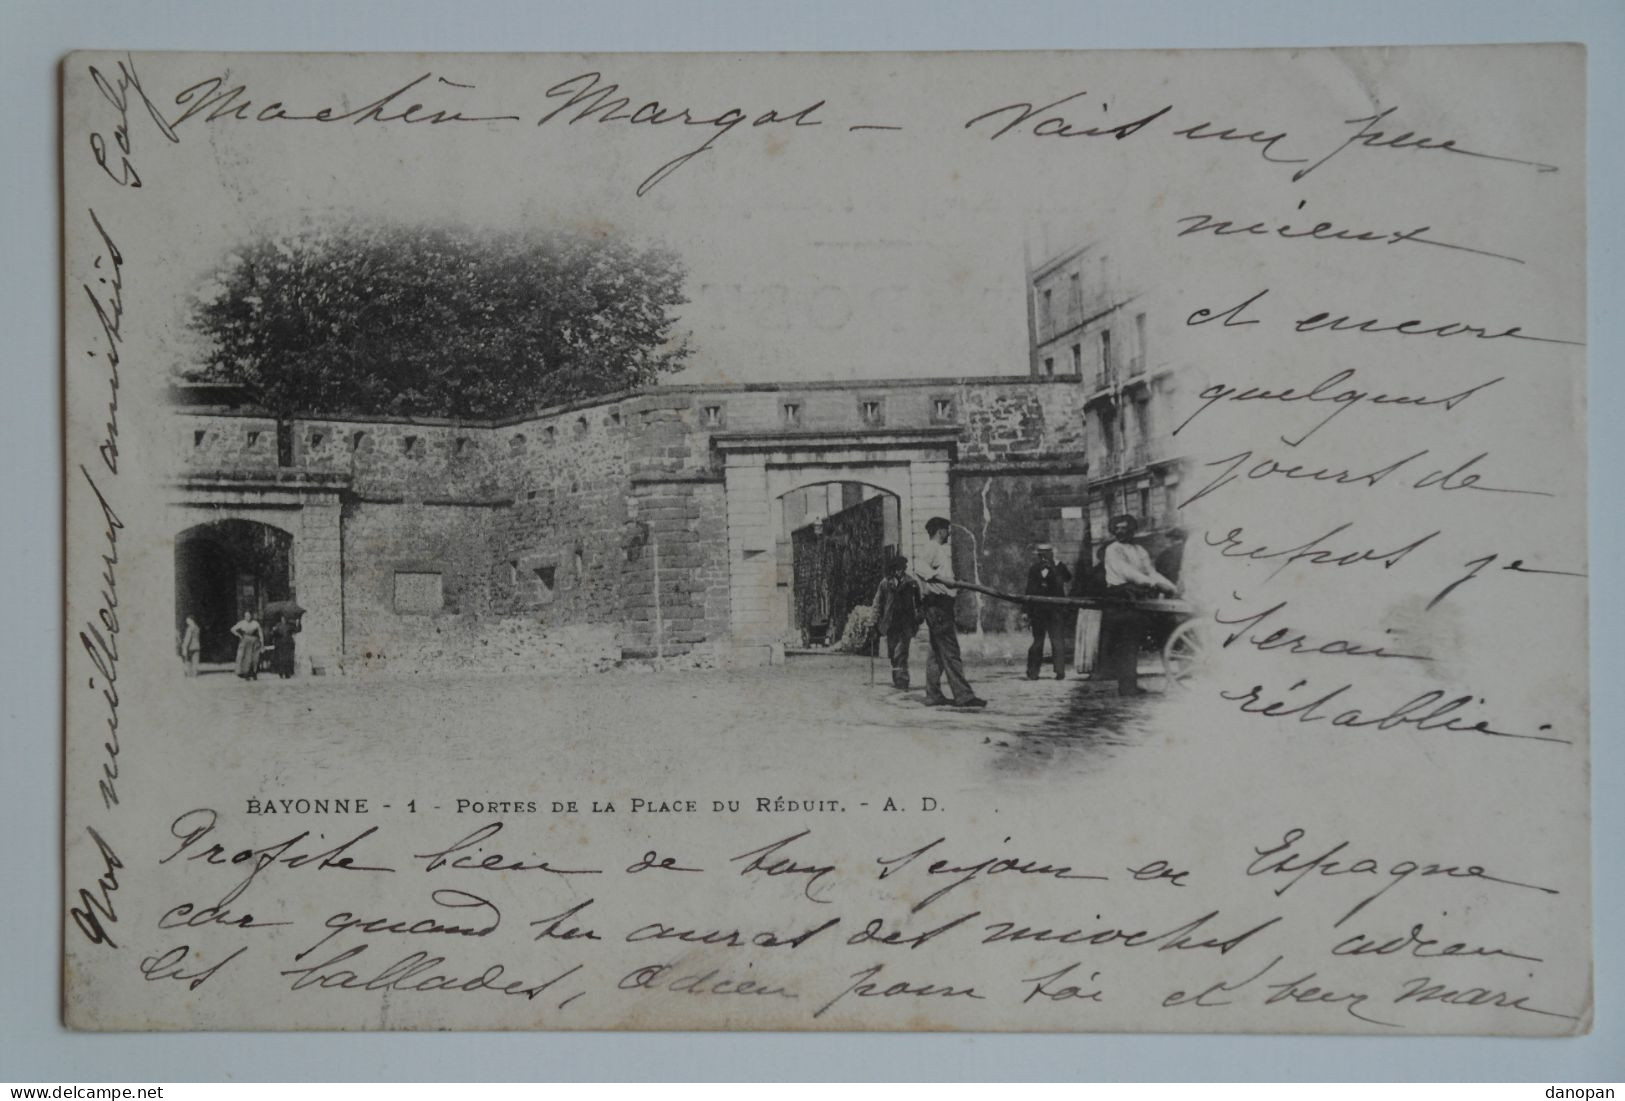 Machèn Margot — Vais un peu
mieux
et encore
quelques
jours de
repos je
serai
rétablie.
BAYONNE - 1 - PORTES DE LA PLACE DU RÉDUIT. - A. D.
Profite bien de ton sejour en Espagne
car quand tu auras des mioches, adieu
les ballades, Adieu pour toi et ton mari
Nos meilleures amitiés Galy
www.delcampe.net
danopan